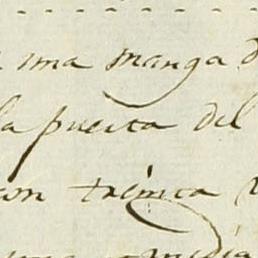 una manga d
la puerta del
con trémica
media